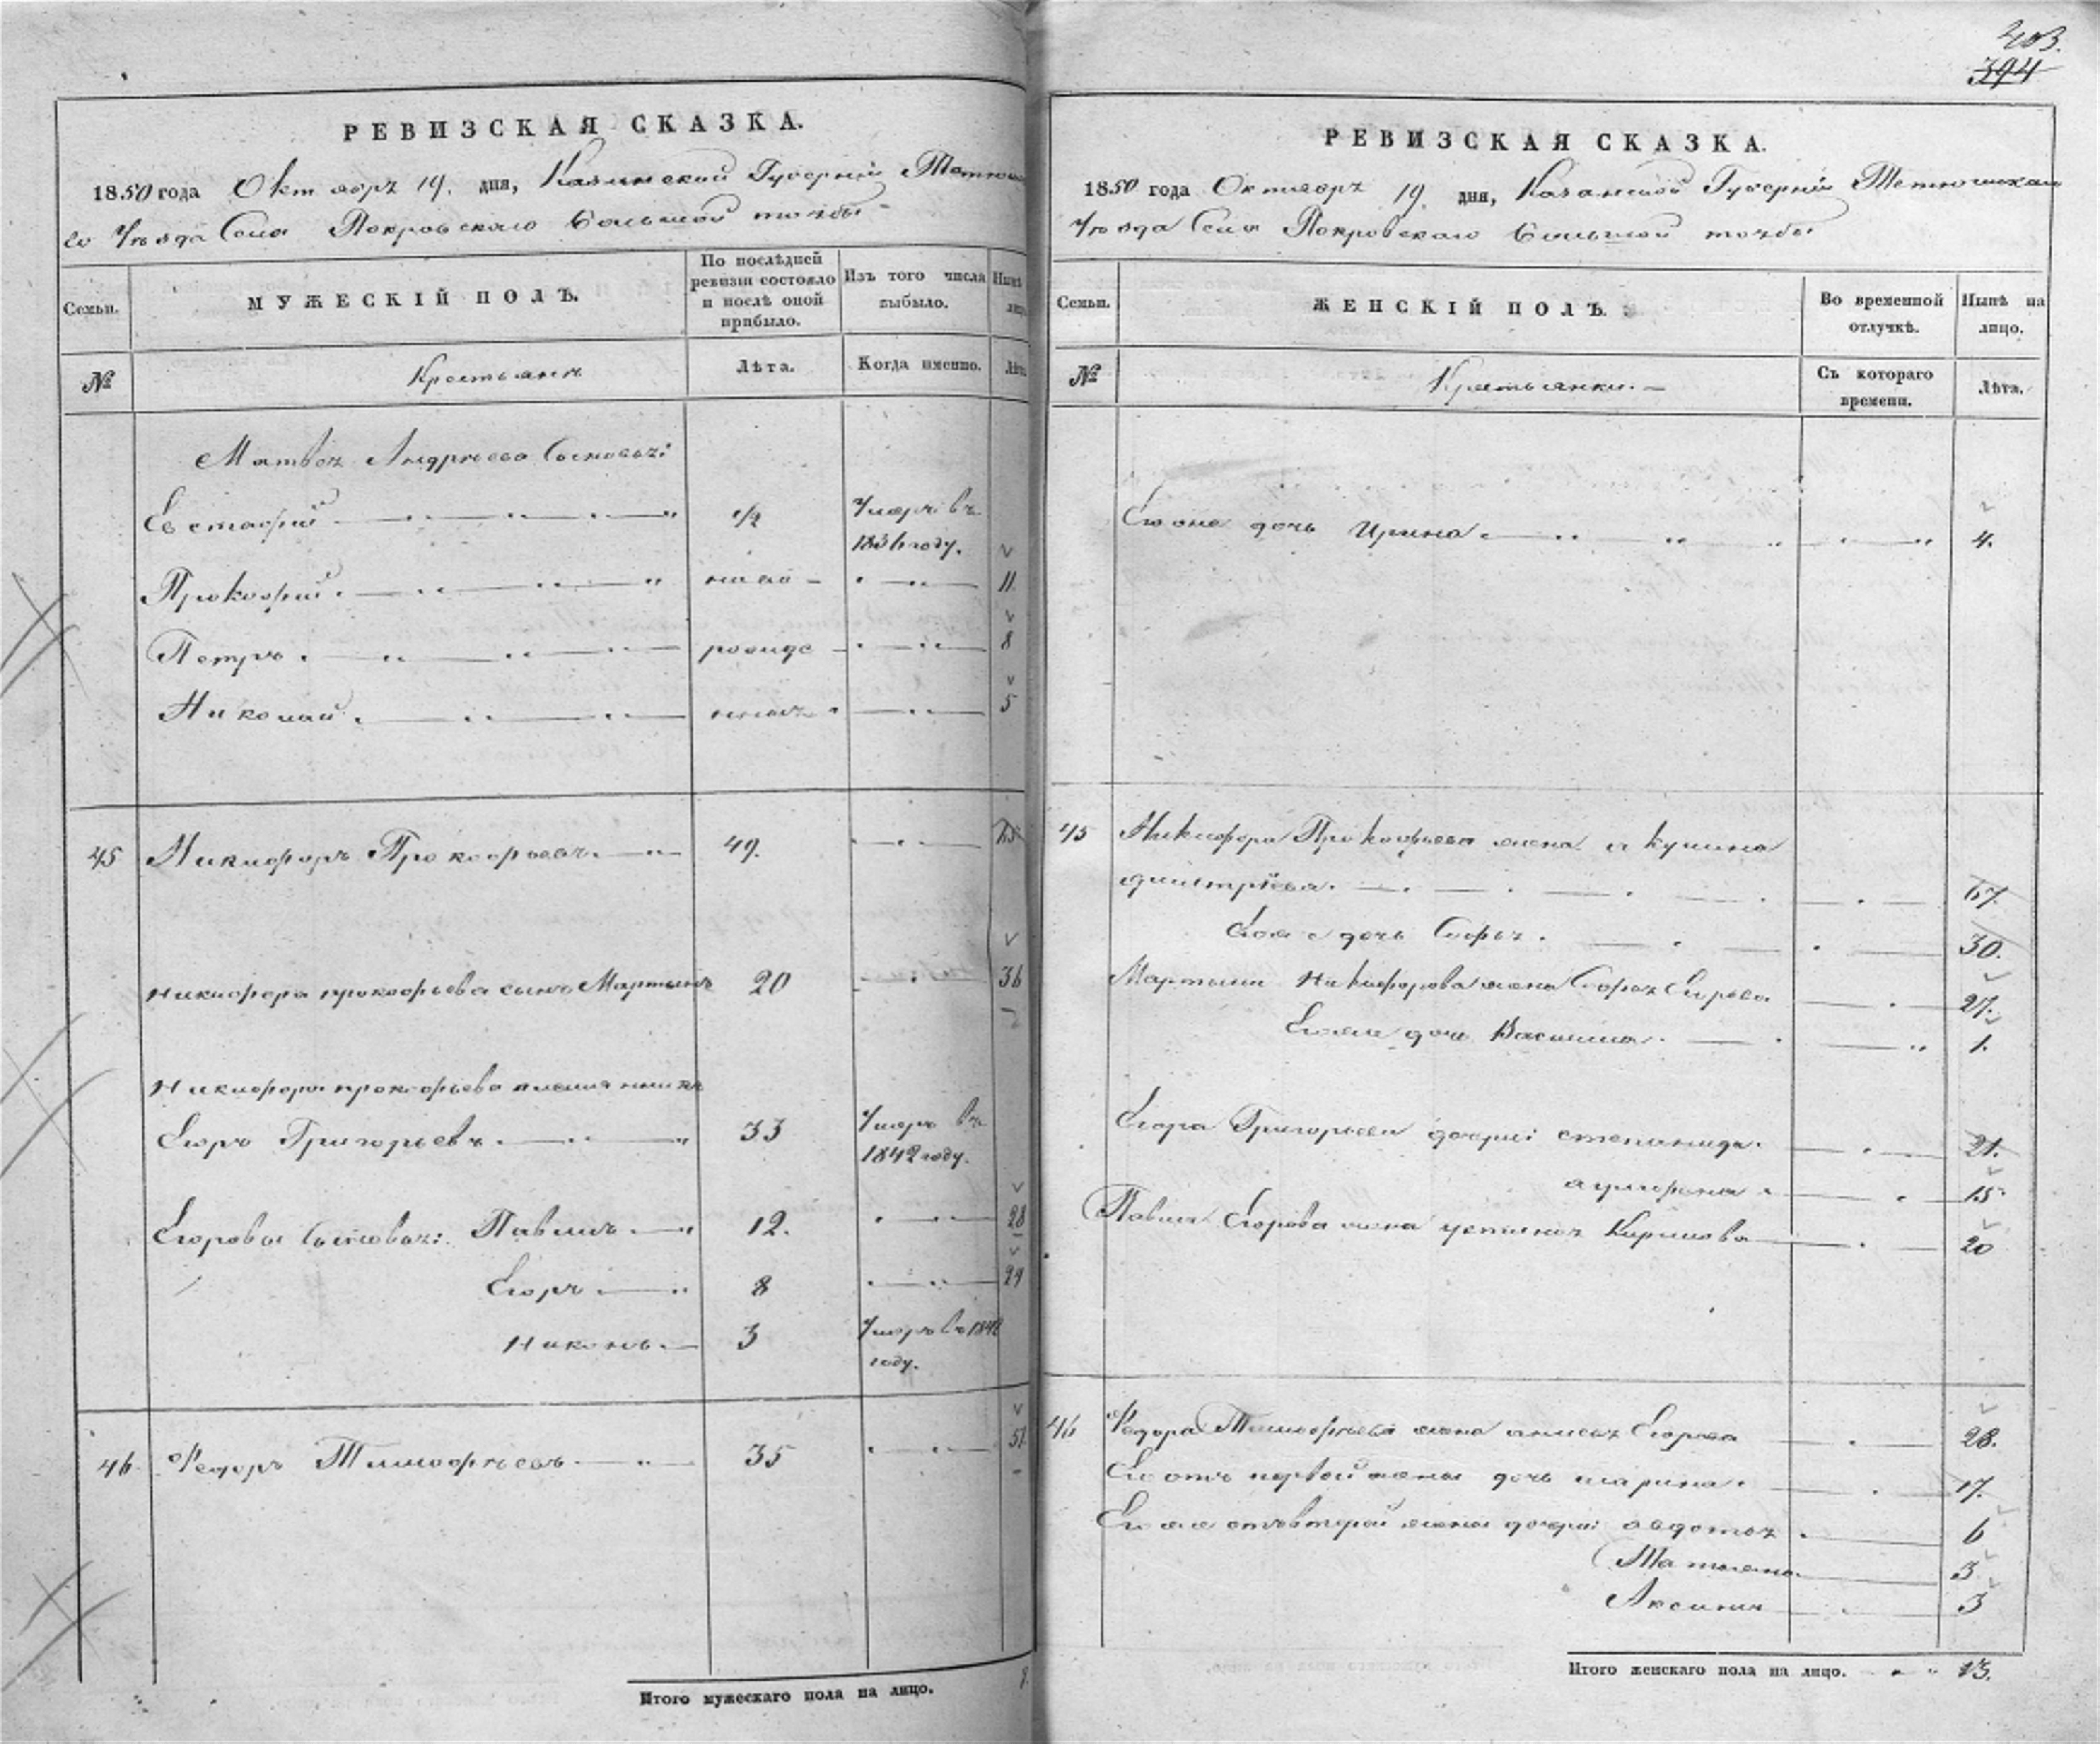 403.
394
РЕВИЗСКАЯ СКАЗКА.
1850 года Октября 19. дня, Казанской Губерніи Тетюшска
го Уѣзда Села Покровскаго Большой тожбы
Семьи.
МУЖЕСКІЙ ПОЛЪ.
По послѣдней
ревизіи состояло
и послѣ оной
прибыло.
Изъ того числа
выбыло.
Нынѣ
№
Крестьянъ
Лѣта.
Когда именно.
Лѣта
Матвея Андреева Сыновья:
Евстафій 1/2 Умеръ въ
1836 году.
Прокофій ново 11.
Петръ рожде 8
Николай нные 5
45 Никифоръ Прокофьевъ. 49. 65
Никифора прокофьева сынъ Мартынъ 20 36
Никифора прокофьева племянникъ
Егоръ Григорьевъ. 33 Умеръ въ
1842 году.
Егоровы Сыновья: Павилъ 12. 28
Егоръ 8 24
Никонъ. 3 Умеръ въ 1842
году.
46 Федоръ Тимофеевъ 35 51
Итого мужескаго пола на лицо. 8.
РЕВИЗСКАЯ СКАЗКА.
1850 года Октября 19. дня, Казанской Губерніи Тетюшскаго
Уѣзда Села Покровскаго Большой тожбы
Семьи.
ЖЕНСКІЙ ПОЛЪ.
Во временной
отлучкѣ.
Нынѣ на
лицо.
№
Крестьянки.
Съ котораго
времени.
Лѣта.
Его дочь Ирина 4.
45 Никифора Прокофьева жена акулина
дмитріева. 67.
Его дочь Софья. 30.
Мартына Никифорова жена Софья Егорова 27.
Его же дочь Василиса. 1.
Егора Григорьева дочери: степанида. 21.
агрифена. 15.
Павила Егорова жена устинья Кирилова 20
46 Федора Тимофеева жена анисья Егорова 28.
Его отъ первой жены дочь марина. 17.
Его же отъ второй жены дочери: авдотья 6
Татьяна. 3
Аксинья 3
Итого женскаго пола на лицо. 13.